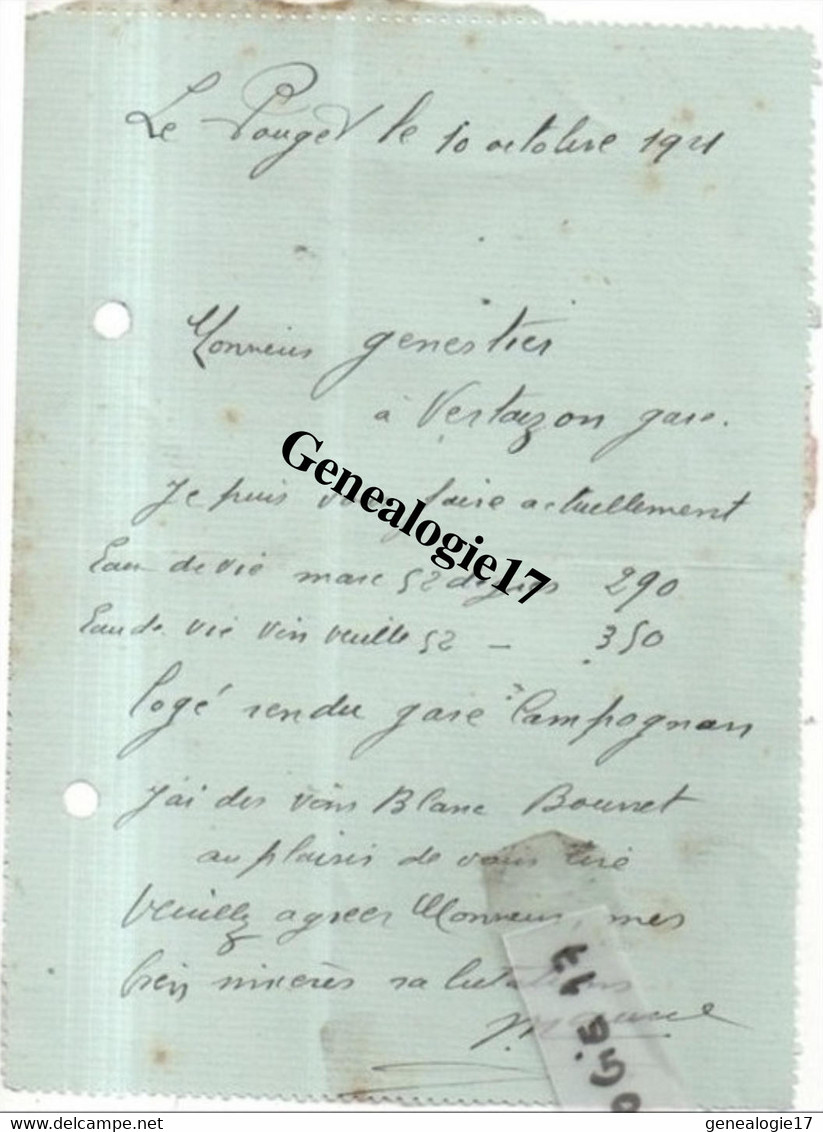 Le Pouget le 10 octobre 1921
Monsieur genestier
à Vertaizon gare.
Je puis vous faire actuellement
Genealogie17
Eau de vie marc 52 degrés 290
Eau de vie vin vieille 52 – 350
logé rendu gare Campagnan
J'ai des vins Blanc Bourret
au plaisir de vous lire
Veuillez agreer Monsieur, mes
bien sincères salutations
delcampe.net
genealogie17